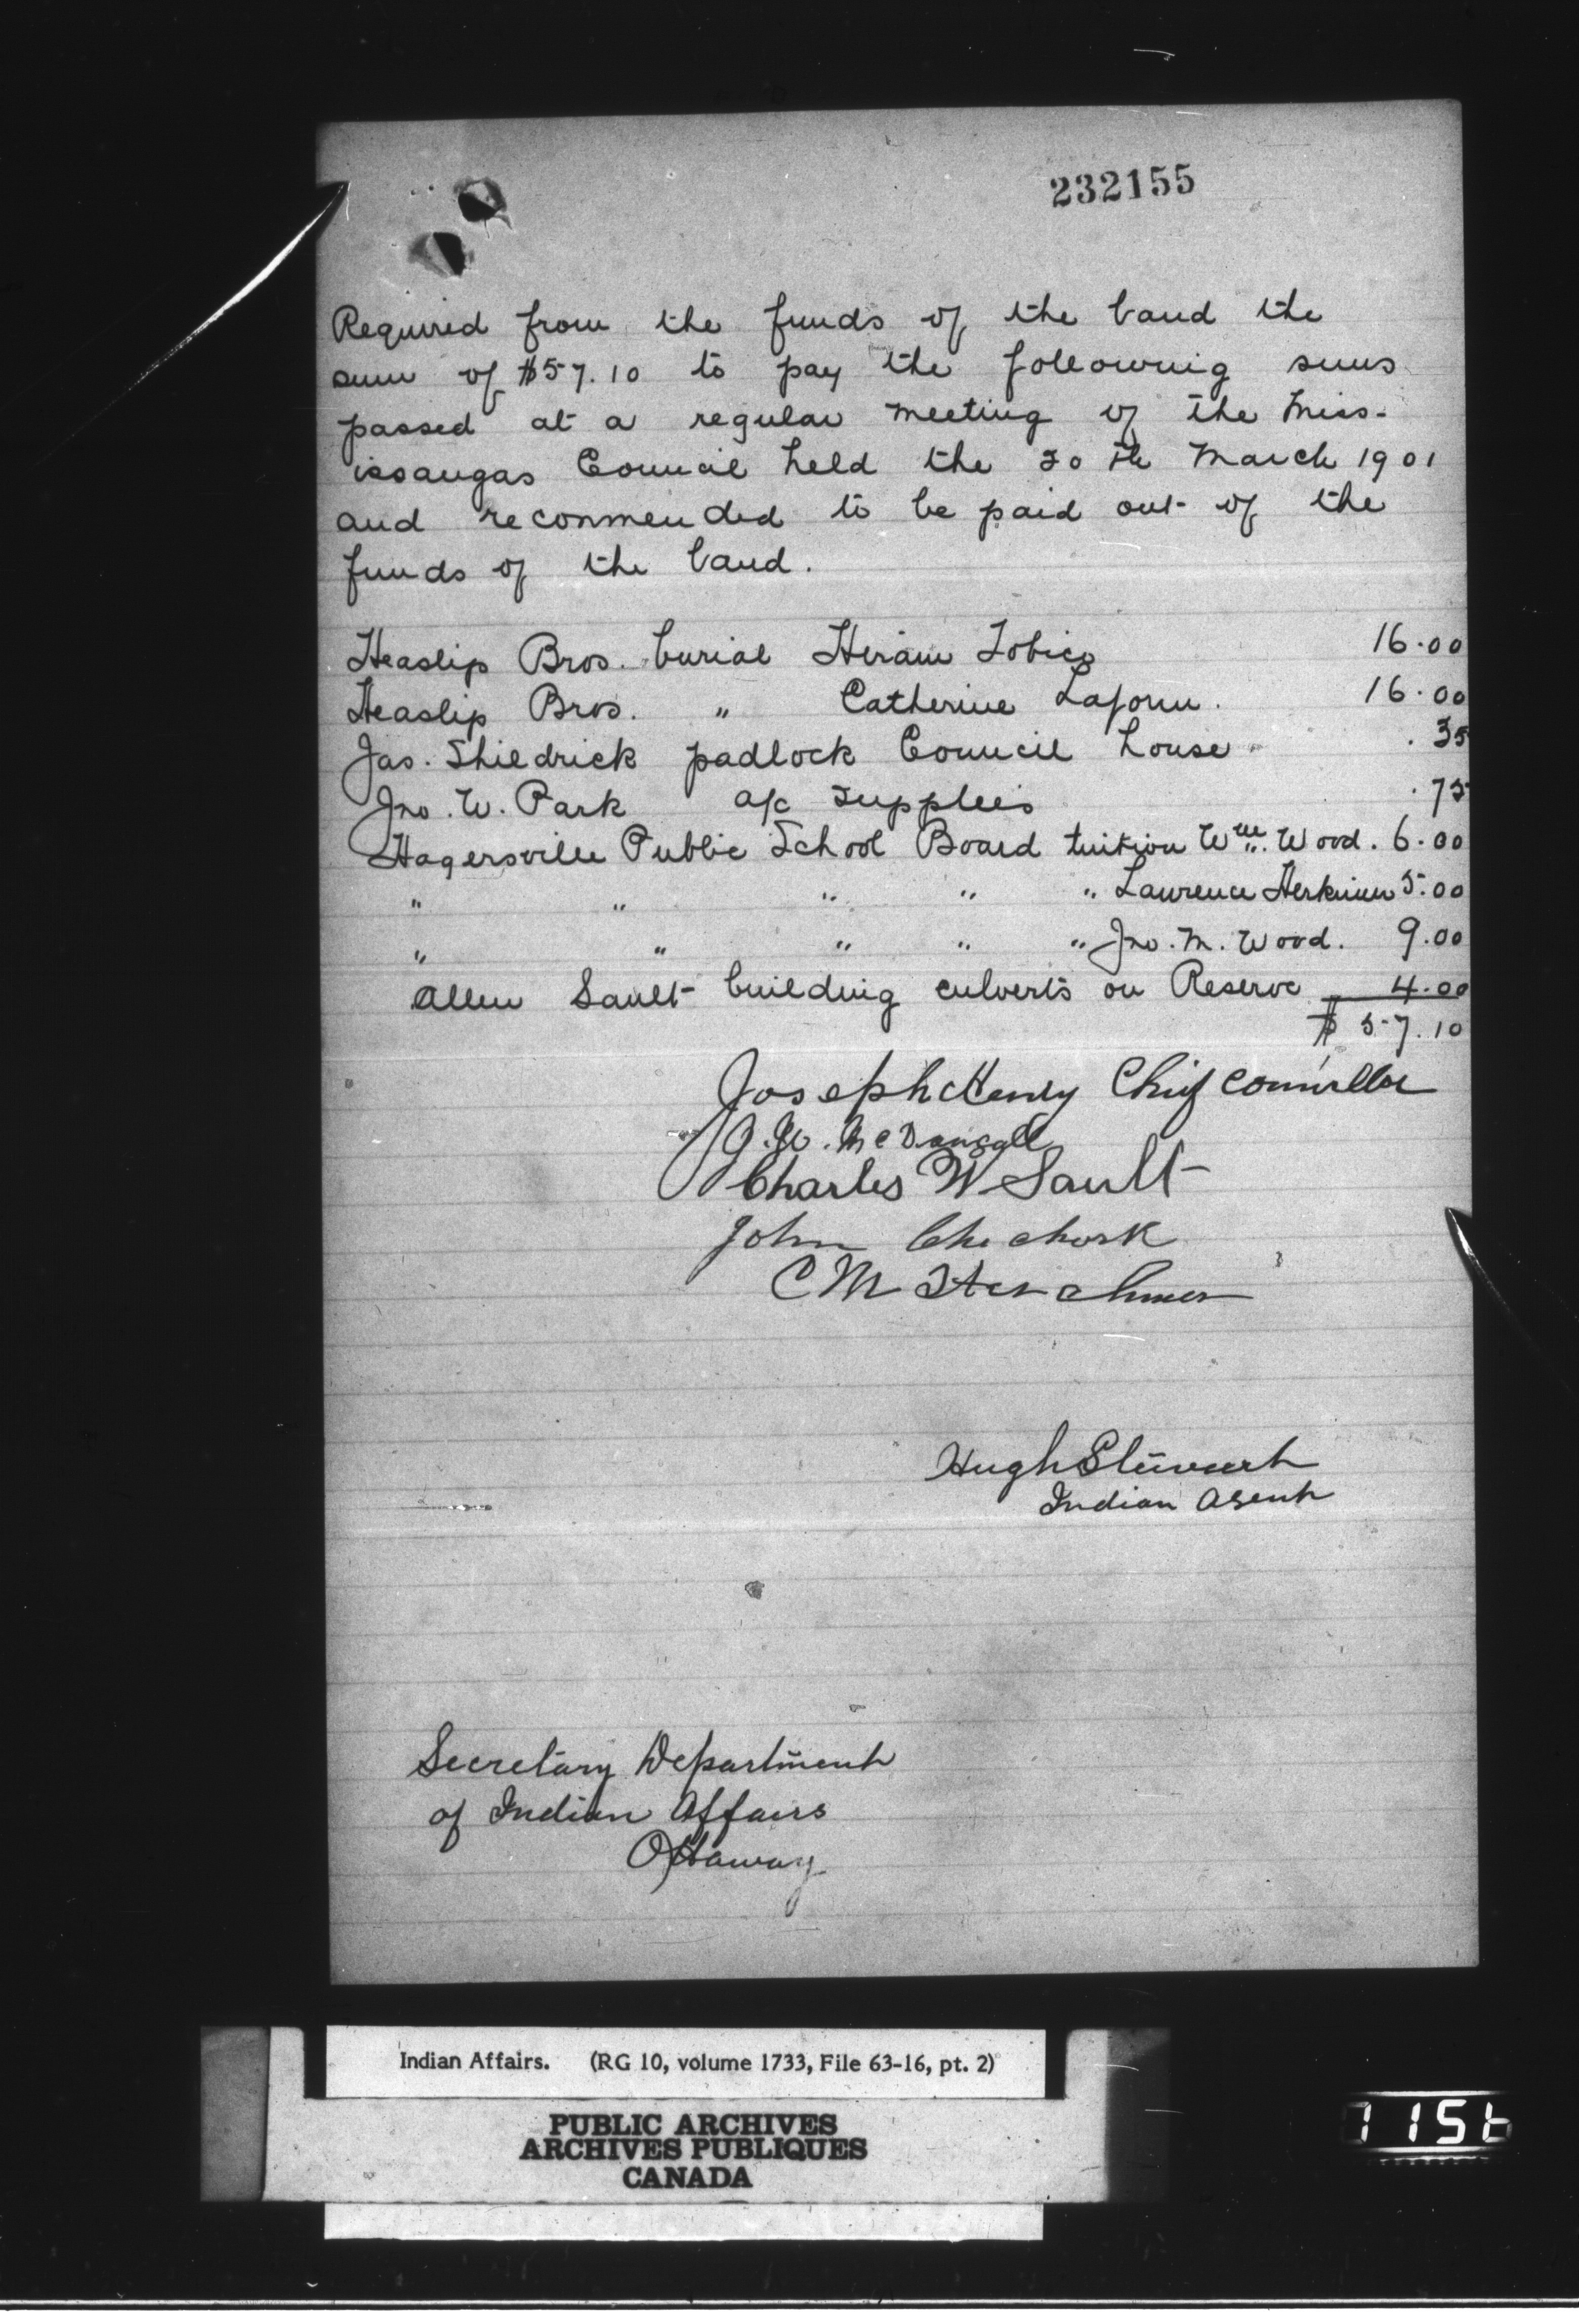 232155
Required from the funds of the band the
sum of $57.10 to pay the following sums
passed at a regular meeting of the Miss-
issaugas Council held the 30th March 1901
and reconmended to be paid out of the
funds of the band.
Heaslip Bros. burial Hiram Tobico 16.00
Heaslip Bros. " Catherine Laform. 16.00
Jas. Shildrick padlock Council house .35
Jno. W. Park a/c supplies .75
Hagersville Public School Board tuition Wm. Wood. 6.00
" " " " " Lawrence Herkimer 5.00
" " " " " Jno. M. Wood. 9.00
Allen Sault building culverts on Reserve 4.00
$ 57.10
Joseph Henry Chief Councillor
McDougall
Charles W Sault
John Chechock
C M
Hugh Stewart
Indian Agent
Secretary Department
of Indian Affairs
Ottaway
Indian Affairs. (RG 10, volume 1733, File 63-16, pt. 2)
PUBLIC ARCHIVES
ARCHIVES PUBLIQUES
CANADA